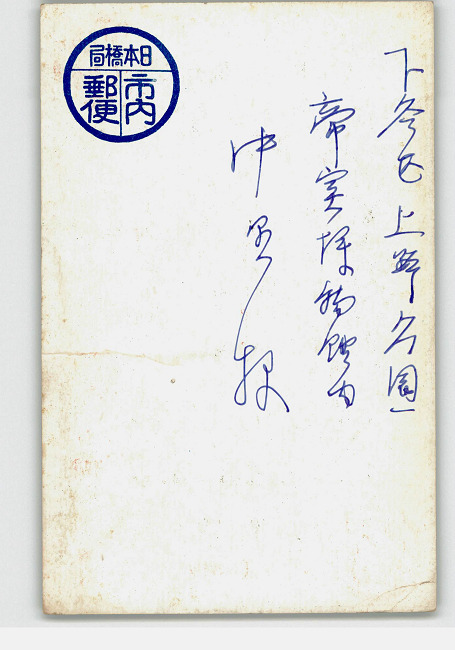 日本橋局
市内
郵便
下谷区上野公園
帝室博物館内
中黒様